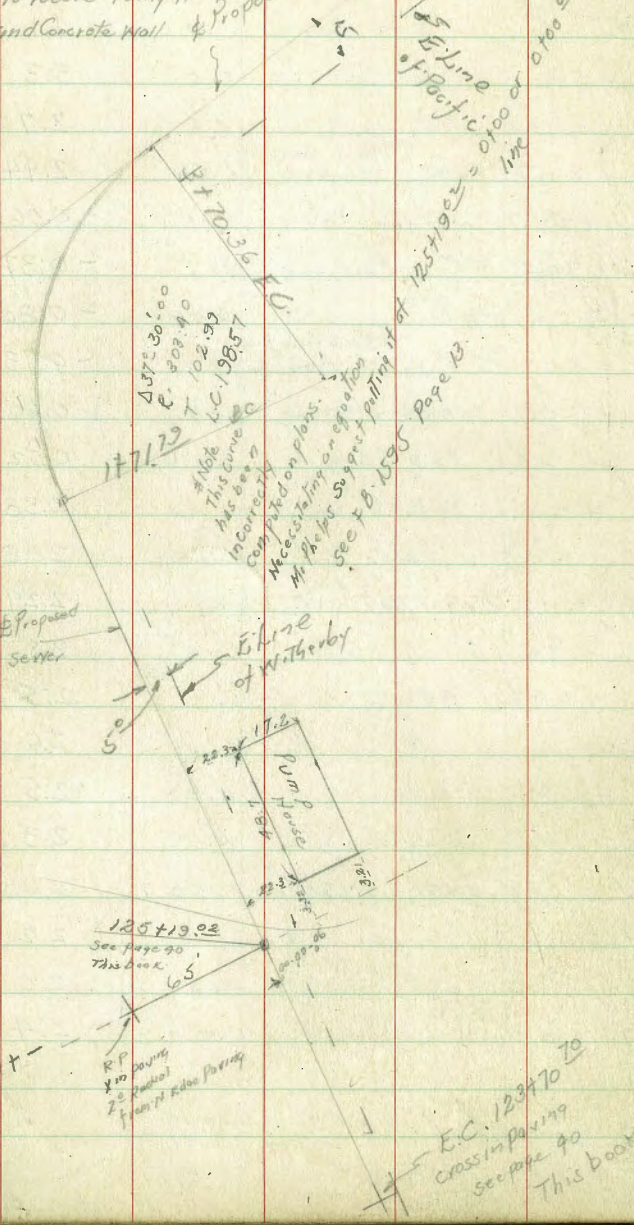 and Concrete Wall
E. Line
of Pacific
line
4+70.36 E.C.
Δ 37°-30'-00
R. 303.40
T 102.99
L.C. 198.57
1+71.79 BC
*Note
This Curve
has been
incorrectly
computed on plans.
Necessitating an equation
Mr. Phelps suggest putting it at 125+19.02 = 0+00 or 0+00
See F.B. 1595 Page 13.
℄ Proposed
Sewer
E. Line
of Witherby
5.0
22.3
17.2
Pump
House
48.1
22.3
125+19.02
See page 90
This book
65'
90-00-00
R.P.
X in paving
2° Radial
from N Edge Paving
E.C. 123+70.70
cross in paving
see page 90
This book